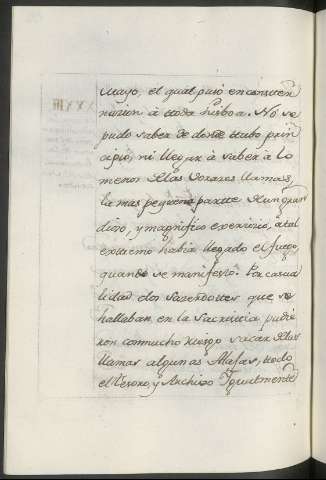 Mayo, el qual puso en conster
nacion à toda Lisboa. No se
pudo saber de donde tubo prin
cipio, ni llegar à saber à lo
menor de las vorazes llamas,
la mas pequeña partte de un gran
dioso, y magnifico exercicio, à tal
extremo habia llegado el fuego,
quando se manifestò. Por casua
lidad dos Sacerdottes que se
hallaban en la Sacristia pudie
ron con mucho riesgo sacar de las
llamas algunas Alajas, todo
el Tesoro, y Archivo Igualmente